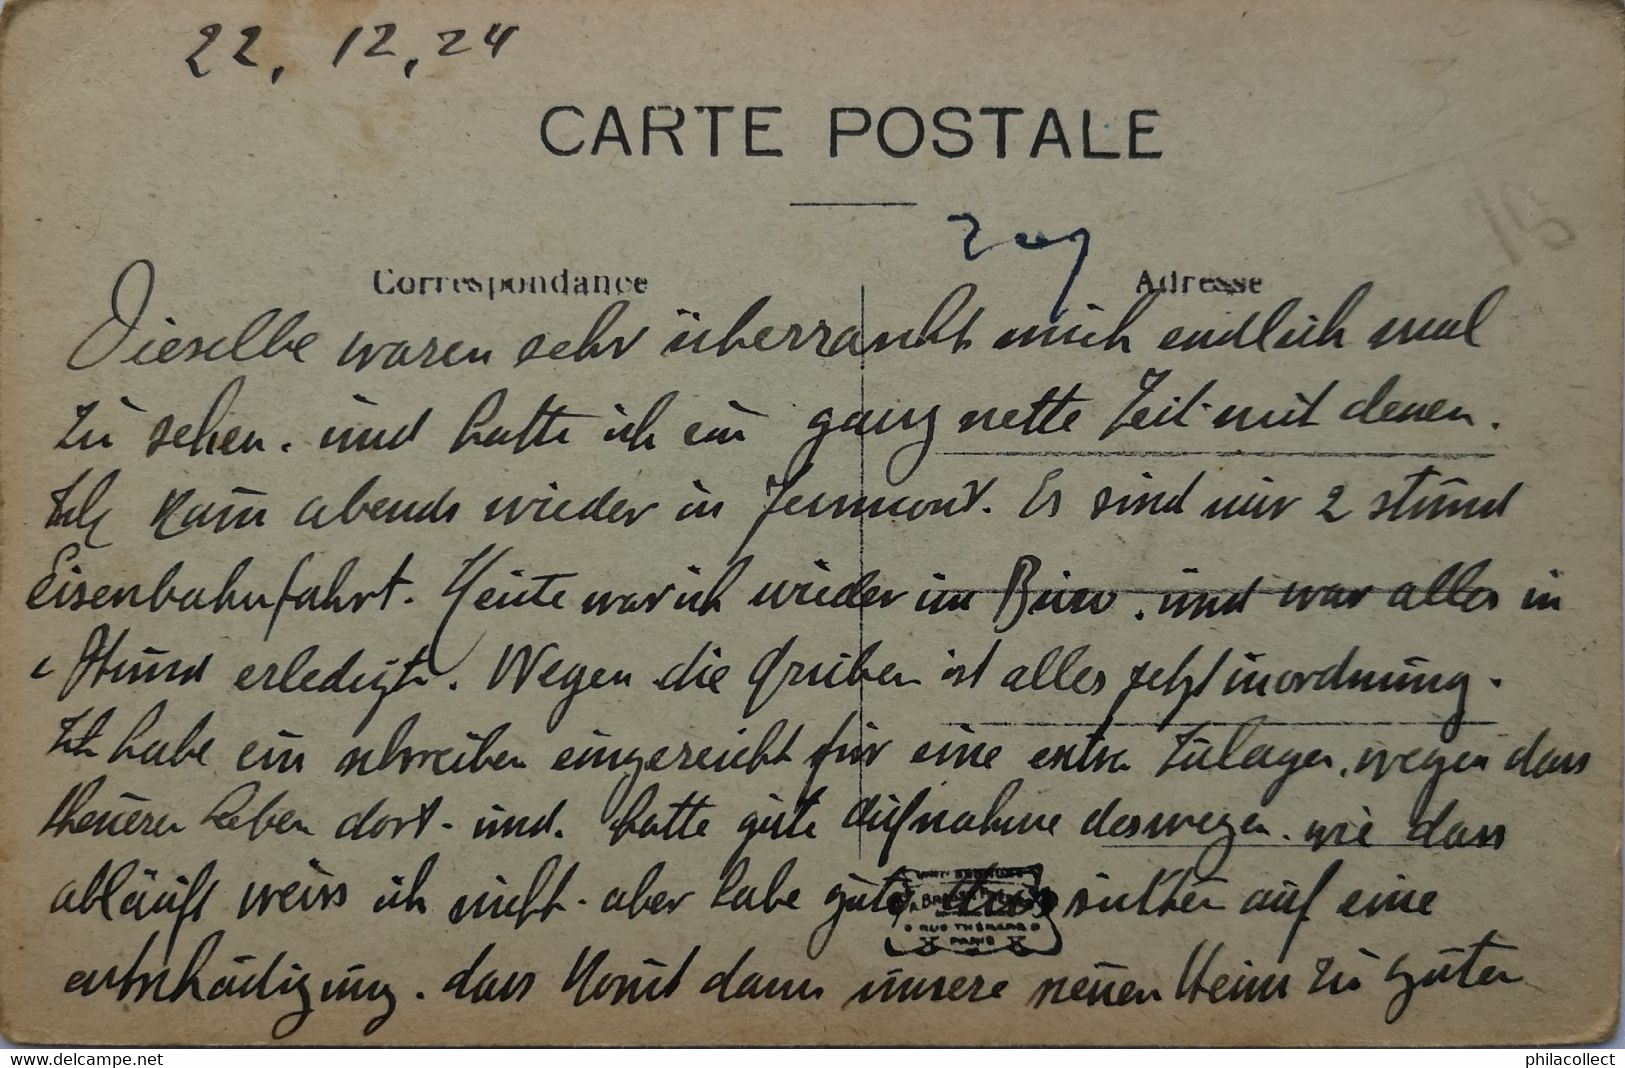 22, 12, 24
CARTE POSTALE
Correspondance
Adresse
Dieselbe waren sehr überrancht mich endlich mal
zu sehen. und hatte ich ein ganz nette Zeit mit denen.
Ich kam abends wieder in Jeumont. Es sind nur 2 stund
Eisenbahnfahrt. Heute war ich wieder im Büro. und war alles in
1 Stund erledigt. Wegen die Gruben ist alles jetzt inordnung.
Ich habe ein schreiben eingereicht für eine extra Zulagen, wegen dass
theueren Leben dort. und. hatte gute Aufnahme deswegen. wie dass
abläuft weiss ich nicht. aber habe gute sichten auf eine
entschädigung. dass komt dann unsere neuen Heim zu guten
RUE THÉRARD
PARIS
philacollect